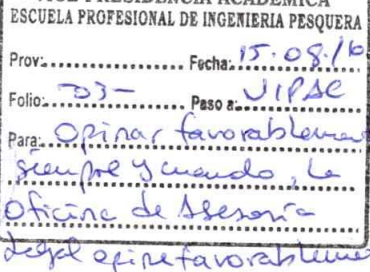 VICE PRESIDENCIA ACADEMICA
ESCUELA PROFESIONAL DE INGENIERIA PESQUERA
Prov: Fecha: 15.08.16
Folio: -03- Pase a: VIPAC
Para: Opinar favorablement
siempre y cuando, la
Oficina de Asesoría
Legal opine favorableme